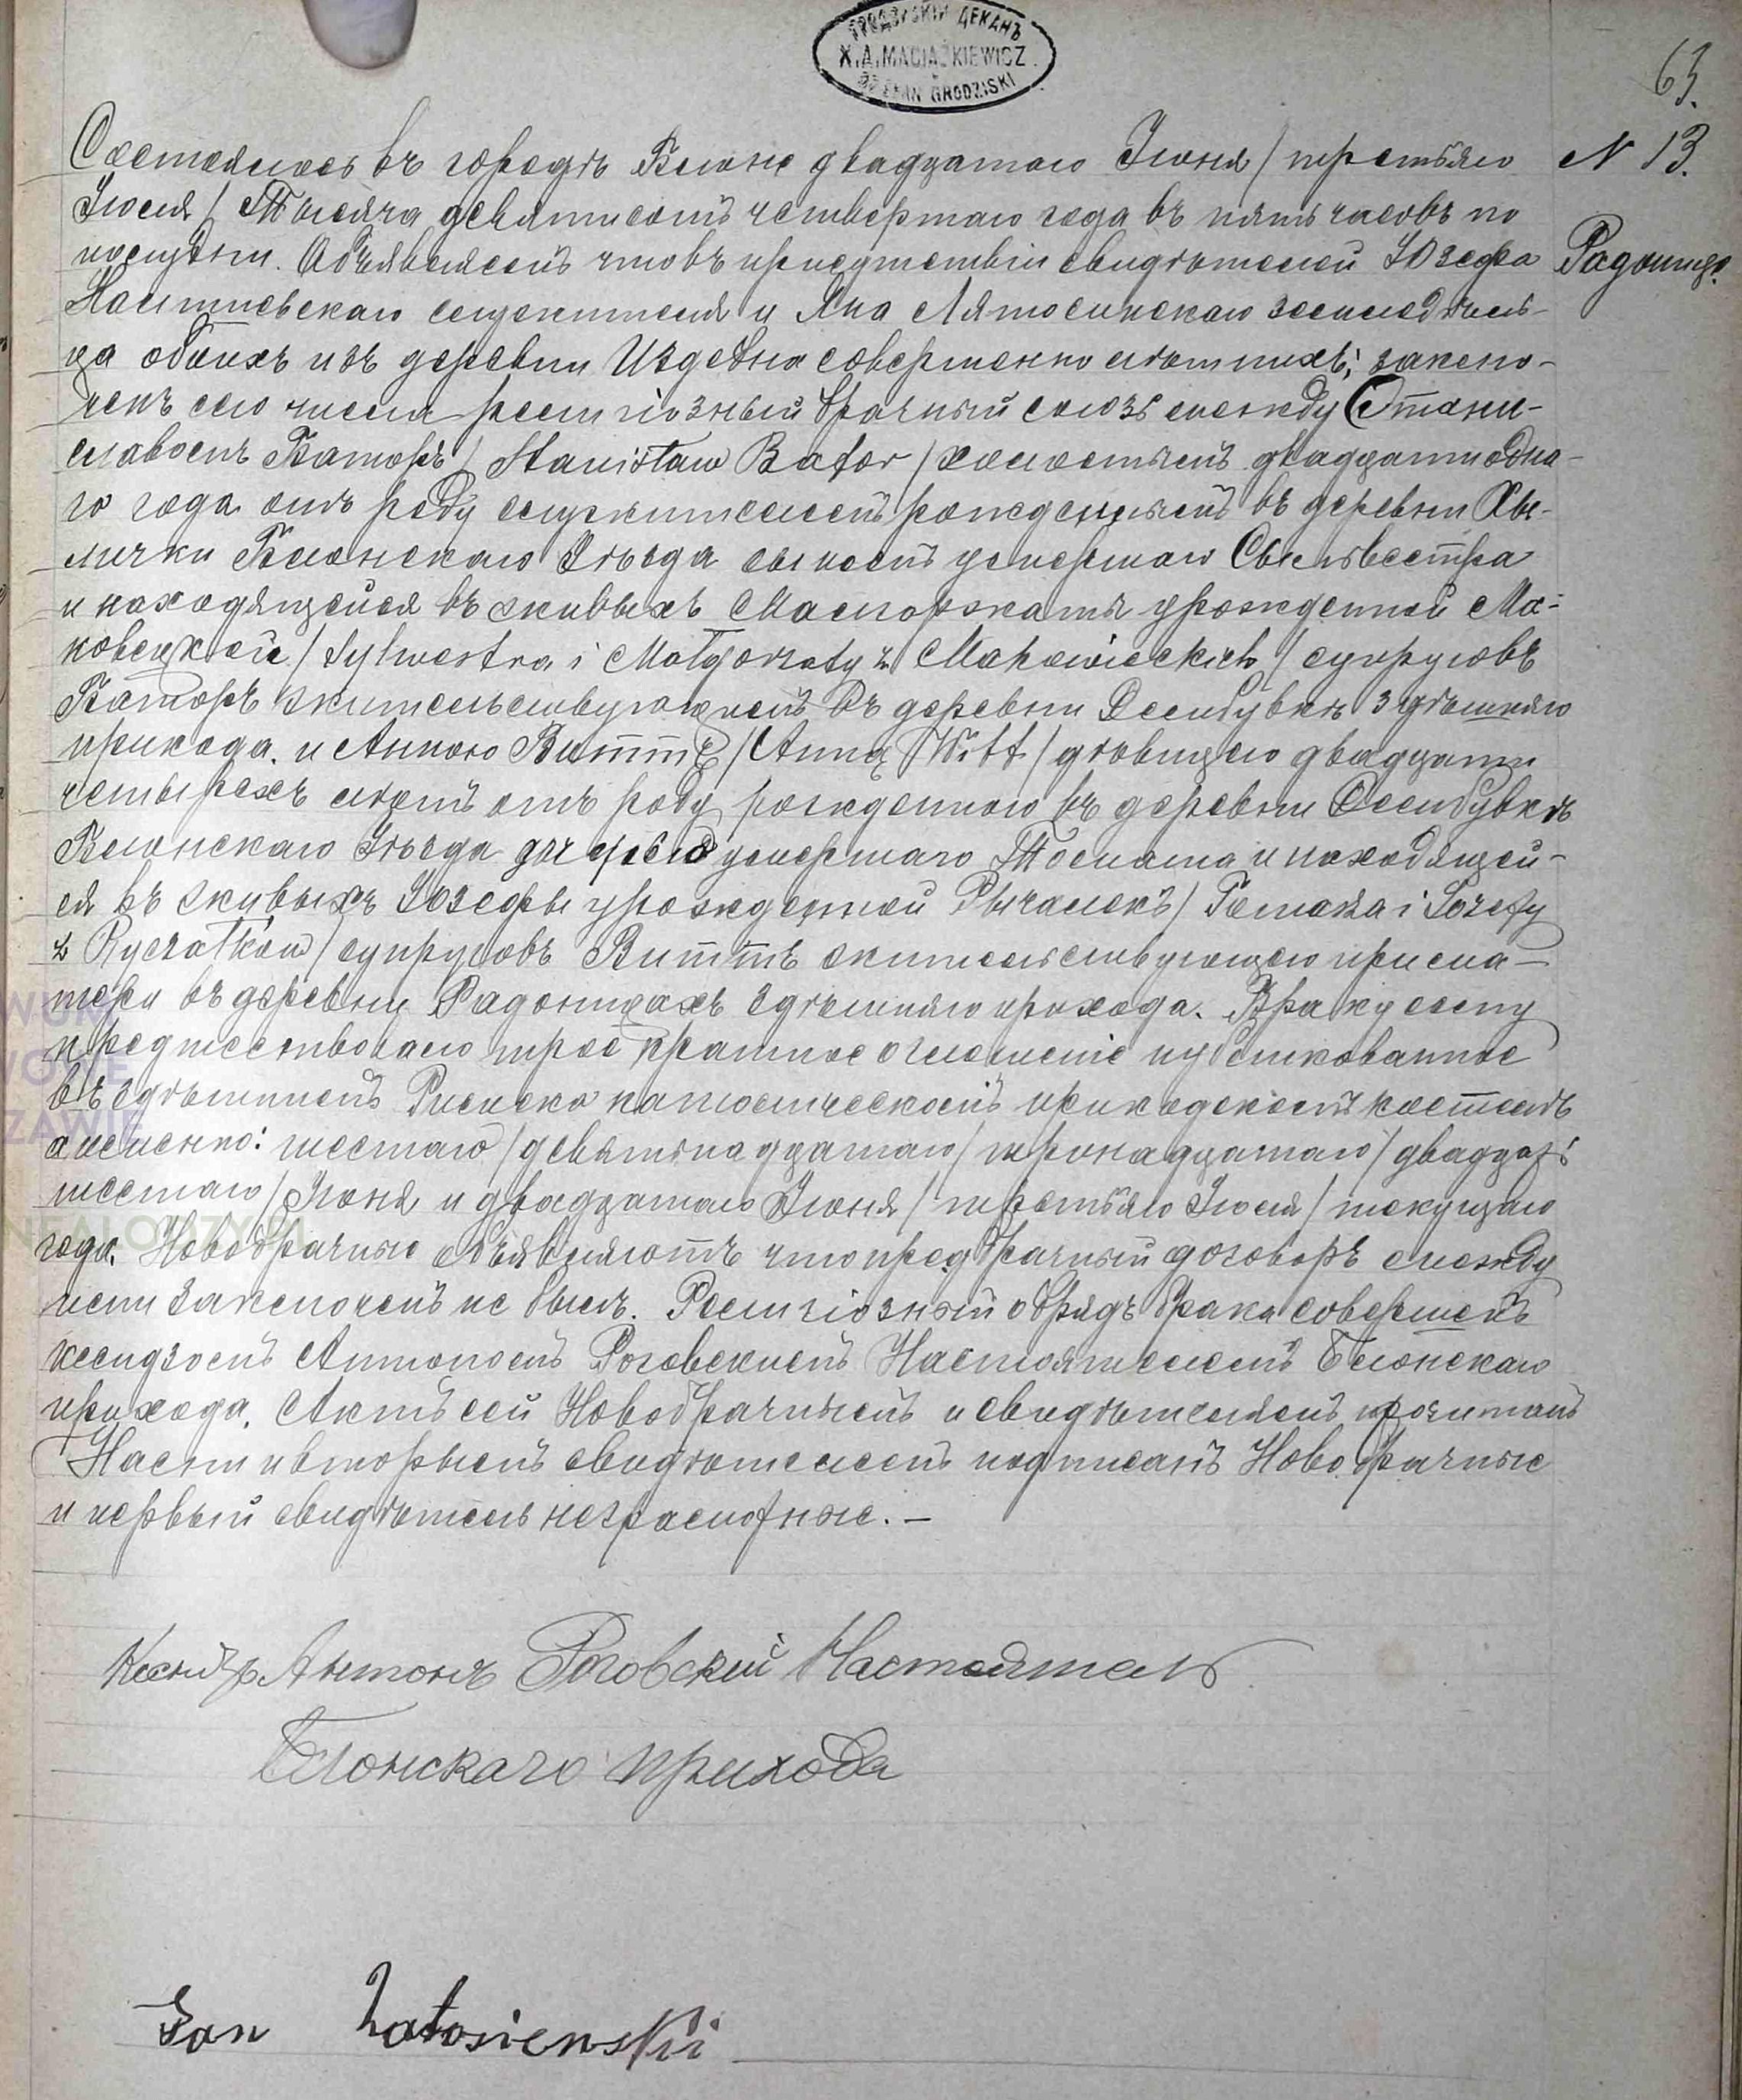 ГРОДЗИСКIЙ ДЕКАНЪ
X.A.MACIĄŻKIEWICZ
DZIEKAN GRODZISKI
63.
N 13.
Радонице.
Состоялось въ городѣ Блоне двадцатаго Іюня / третьяго
Іюля / Тысяча девятисотъ четвертаго года въ пять часовъ по
полудни. Объявляемъ что въ присутствіи свидѣтелей Юзефа
служителя и Яна Лятосинскаго земледѣль-
ца обоихъ изъ деревни Издебна совершеннолѣтнихъ; заклю-
ченъ сего числа религіозный брачный союзъ между Стани-
славомъ Баторъ / Stanisław Bator / холостымъ двадцатиодна-
го года отъ роду служителемъ рожденнымъ въ деревни Хмѣ-
лички Блонскаго Уѣзда сыномъ умершаго Сыльвестра
и находящейся въ живыхъ Малгоржаты урожденной Ма-
ковецкой / Sylwestra i Małgorzaty z Makowieckich / супруговъ
Баторъ жительствующимъ въ деревни Осембувкѣ здѣшняго
прихода. и Анною Виттъ / Anną Witt / дѣвицею двадцати
четырехъ лѣтъ отъ роду рожденною въ деревни Осембувкѣ
Блонскаго Уѣзда дочерью умершаго Томаша и находящей-
ся въ живыхъ Юзефы урожденной Рычалекъ / Tomasza i Józefy
z Ryczałków / супруговъ Виттъ жительствующею при ма-
тери въ деревни Радоницахъ здѣшняго прихода. Браку сему
предшествовало троекратное оглашеніе публикованное
въ здѣшнемъ Римско католическомъ приходскомъ костелѣ
а именно: шестаго / девятьнадцатаго / тринадцатаго / двадцать
шестаго / Іюня и двадцатаго Іюня / третьяго Іюля / текущаго
года. Новобрачные объявляютъ что предбрачный договоръ между
ними заключенъ не былъ. Религіозный обрядъ брака совершенъ
ксендзомъ Антономъ Роговскимъ Настоятелемъ Блонскаго
прихода. Актъ сей Новобрачнымъ и свидѣтелямъ прочитанъ
Нами и вторымъ свидѣтелемъ подписанъ Новобрачные
и первый свидѣтель неграмотные. –
Ксендзъ Антонъ Роговскій Настоятель
Блонскаго прихода
Jan Latosienskii